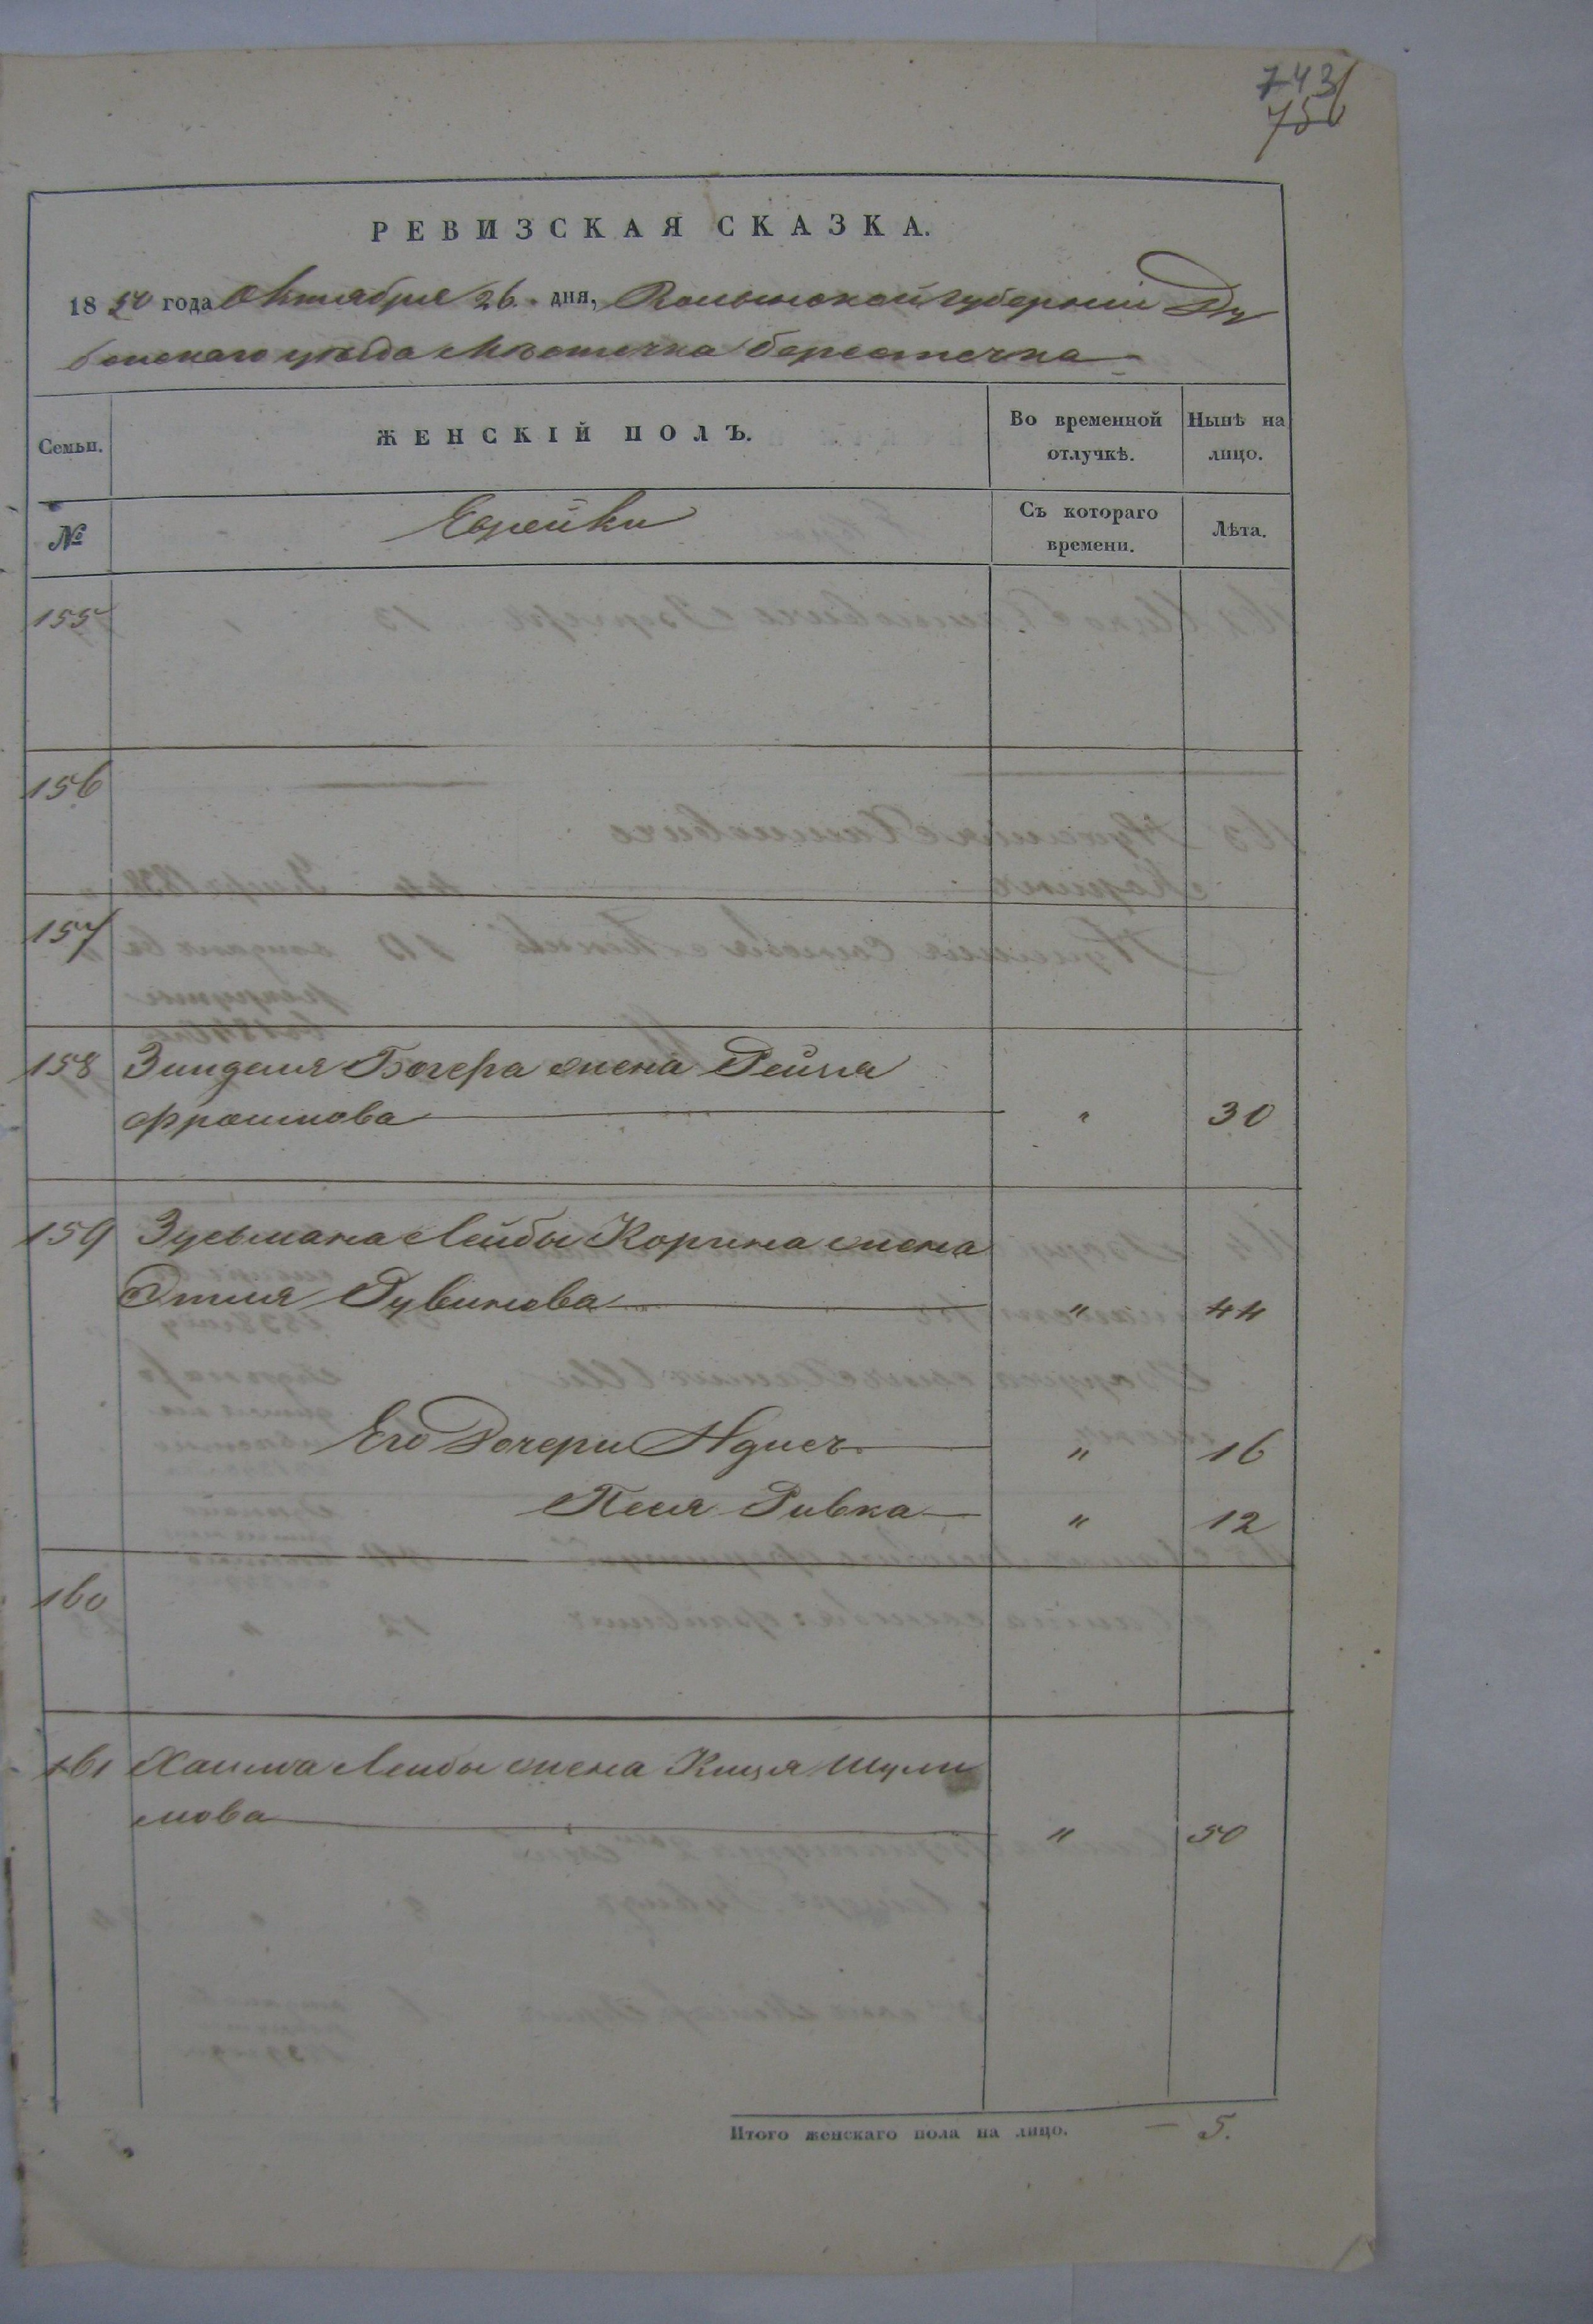 743
756
РЕВИЗСКАЯ СКАЗКА.
1850 года Октября 26. дня, Волынской губерніи Ду
бенскаго уѣзда Мѣстечка Берестечка
Семьи.
ЖЕНСКІЙ ПОЛЪ.
Во временной отлучкѣ.
Нынѣ на лицо.
№
Еврейки
Съ котораго времени.
Лѣта.
155
156
157
158 Зинделя Богера жена Рейза
Фроимова " 30
159 Зусьмана Лейбы Корина жена
Этля Рувинова " 44
Его Дочери Адись " 16
Песя Ривка " 12
160
161 Хаима Лейбы жена Кися Шули
мова " 50
Итого женскаго пола на лицо. — 5.